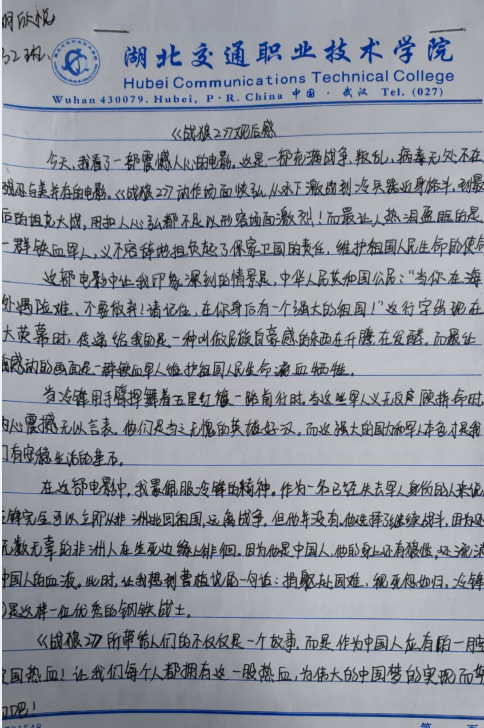 胡欣悦
湖北交通职业技术学院
Hubei Communications Technical College
Wuhan 430079. Hubei, P·R. China 中国·武汉 Tel. (027)
《战狼2》观后感
今天,我看了一部震撼人心的电影。这是一部充满战争,叛乱,病毒无处不在
与美并存的电影。《战狼2》动作场面恢弘,从水下激战到冷兵器近身格斗,到最
后的坦克大战,用扣人心弦都不足以形容场面激烈!而最让人热泪盈眶的是
一群铁血军人,义不容辞地担负起了保家卫国的责任,维护祖国人民生命的使命
这部电影中让我印象深刻的情景是,中华人民共和国公民:"当你在海
外遇险难、不要放弃!请记住,在你身后有一个强大的祖国!"这行字出现在
大荧幕时,传递给我的是一种叫做民族自豪感的东西在升腾在发酵。而最让
感动的画面是一群铁血军人维护祖国人民生命流血牺牲。
当冷锋用手臂撑舞着五星红旗一路前行时,当这些军人义无反顾拼命时
内心震撼无以言表。他们是当之无愧的英雄好汉。而这强大的国力和军人本色才是我
们有安稳生活的基石。
在这部电影中,我最佩服冷锋的精神。作为一名已经失去军人身份的人来说
冷锋完全可以立即从非洲撤回祖国,远离战争,但他并没有,他选择了继续战斗,因为还
无数无辜的非洲人在生死边缘上徘徊。因为他是中国人,他的身上还有狼性。还流淌
中国人的血液。此时,让我想到曹植说的一句话:捐躯赴国难,视死忽如归。冷锋
是这样一位优秀的钢铁战士。
《战狼2》所带给人们的不仅仅是一个故事,而是作为中国人应有的一腔
爱国热血!让我们每个人都拥有这一股热血,为伟大的中国梦的实现而奋